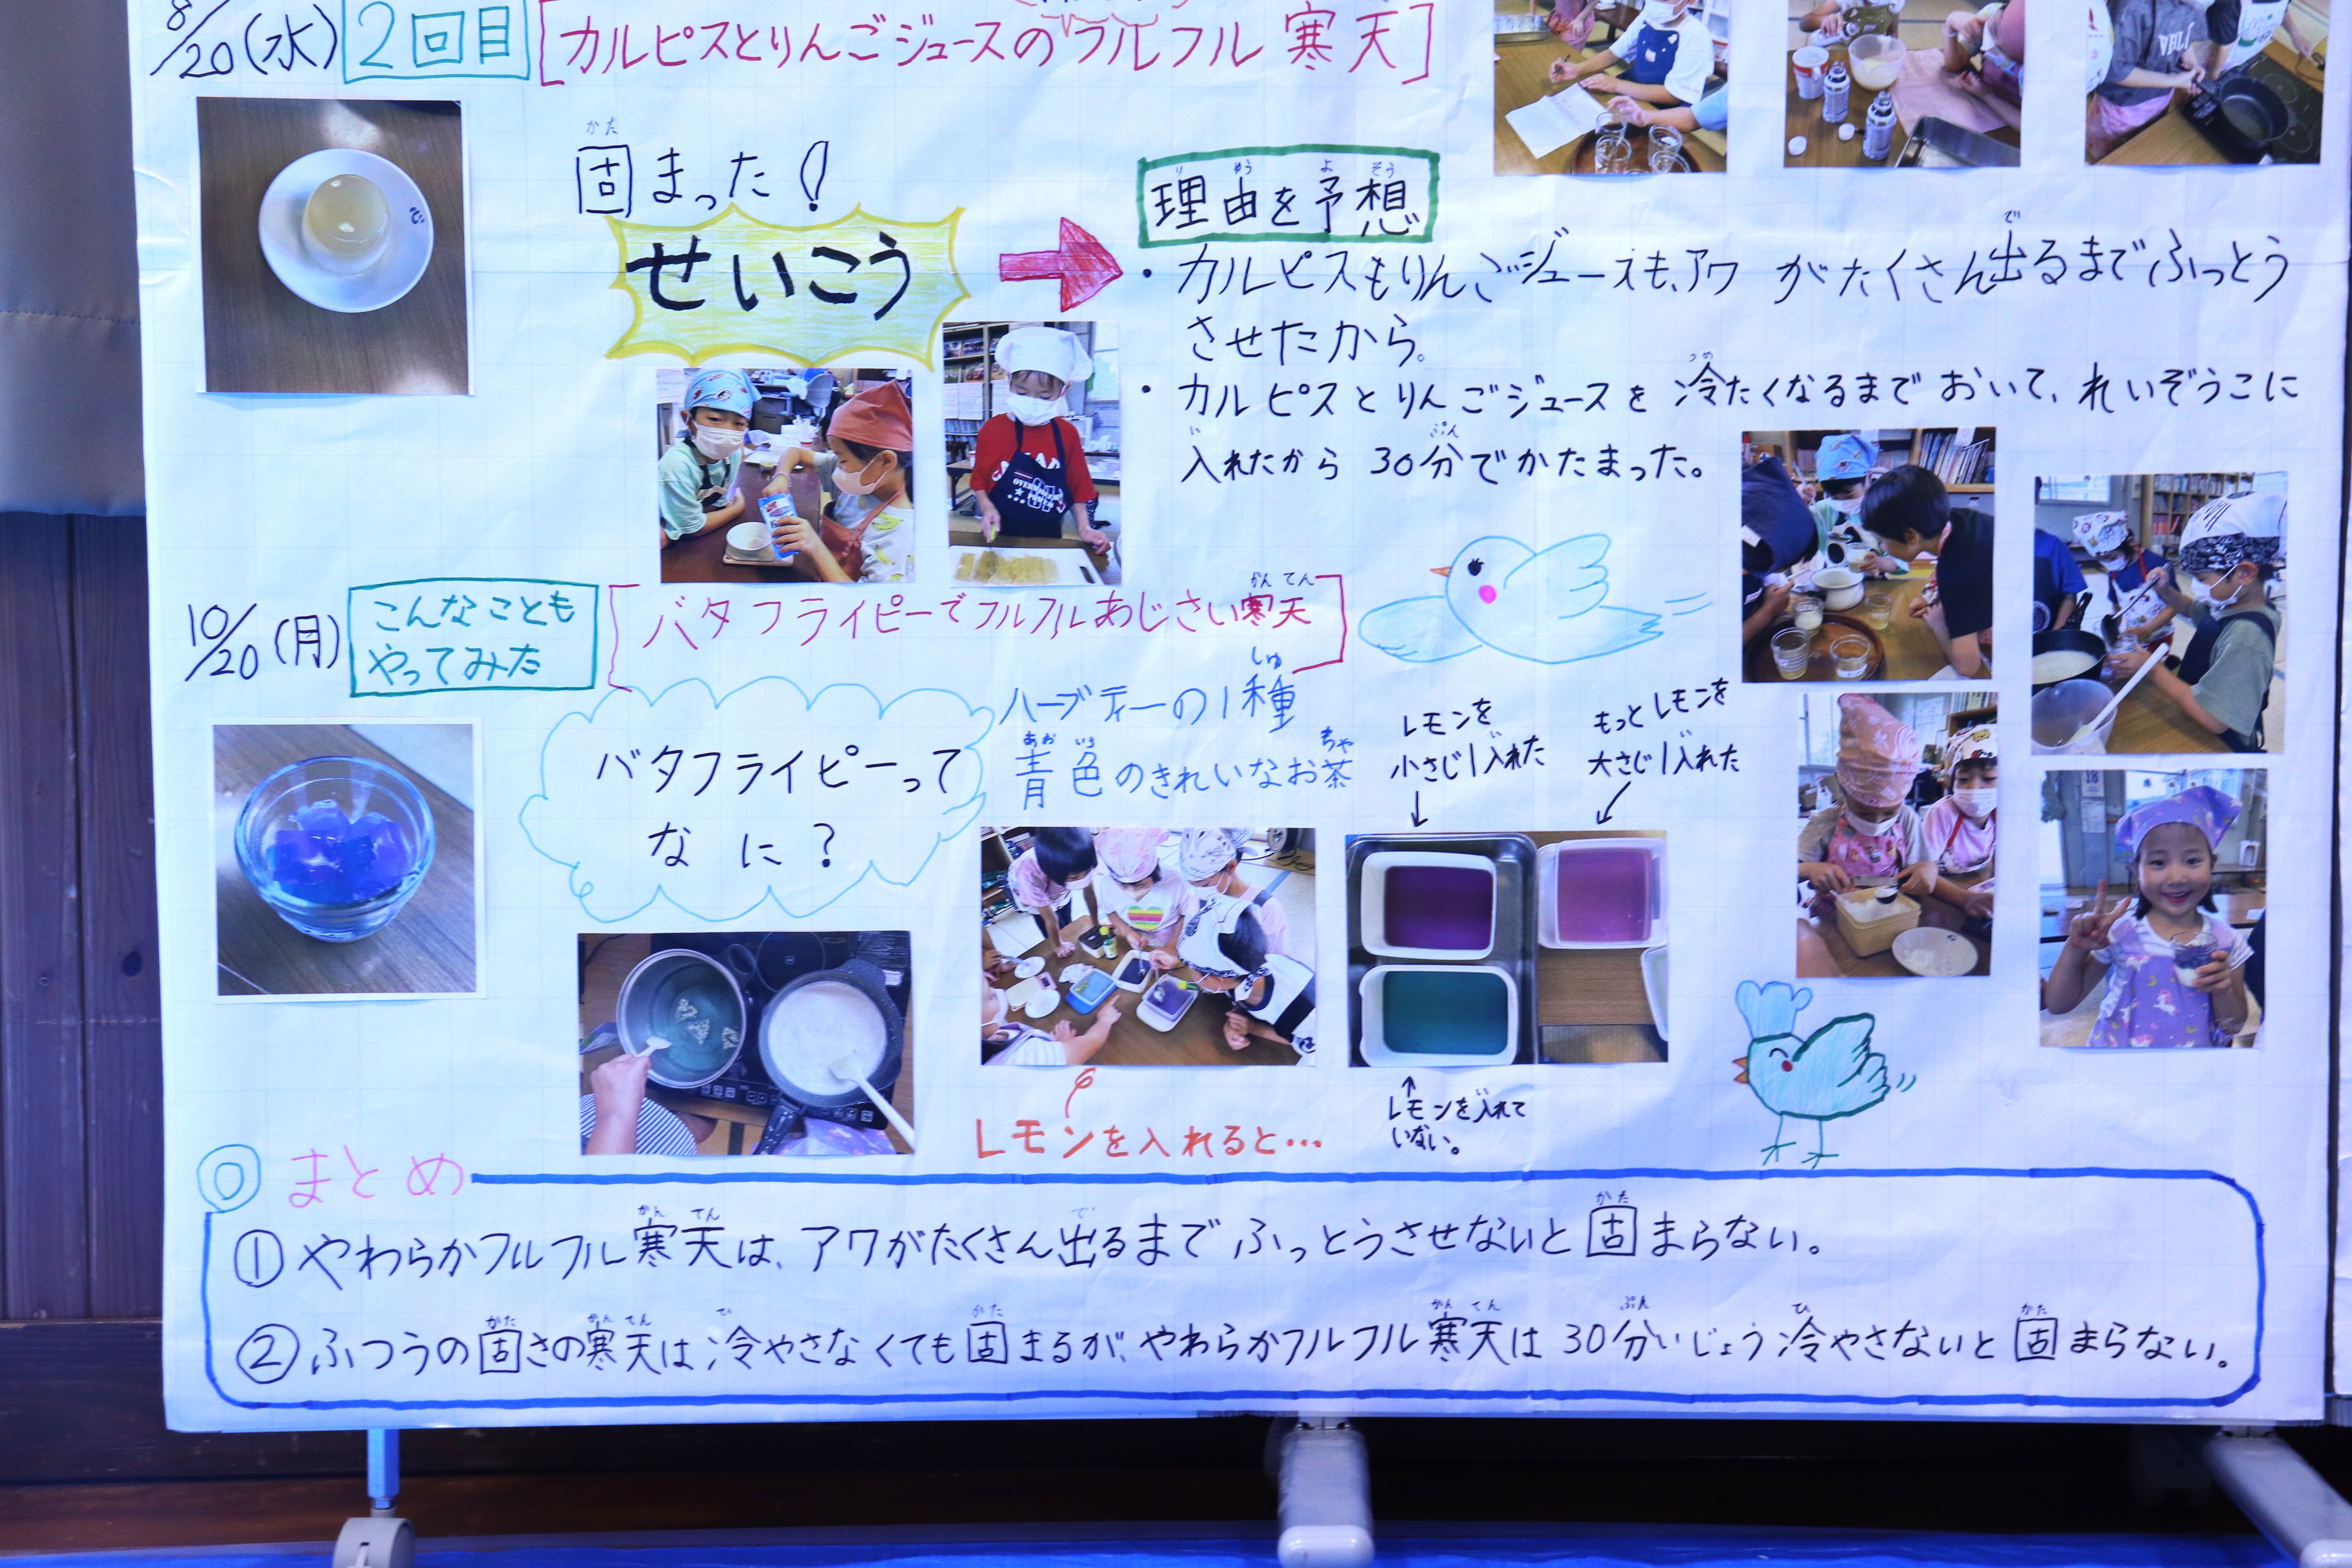 8/20(水) 2回目 [カルピスとりんごジュースのフルフル寒天]
かた
固まった!
せいこう
り ゆう よ そう
理由を予想
で
・カルピスもりんごジュースも、アワがたくさん出るまでふっとう
させたから。
つめ
・カルピスとりんごジュースを冷たくなるまでおいて、れいぞうこに
い ぷん
入れたから30分でかたまった。
10/20(月) こんなことも
やってみた
かん てん
[バタフライピーでフルフルあじさい寒天]
バタフライピーって
なに?
しゅ
ハーブティーの1種
あお いろ ちゃ
青色のきれいなお茶
レモンを
小さじ1入れた
もっとレモンを
大さじ1入れた
レモンを入れると…
レモンを入れて
いない。
◎まとめ
かん てん で かた
①やわらかフルフル寒天は、アワがたくさん出るまでふっとうさせないと固まらない。
かた かん てん ひ かた かん てん ぷん ひ かた
②ふつうの固さの寒天は冷やさなくても固まるが、やわらかフルフル寒天は30分いじょう冷やさないと固まらない。